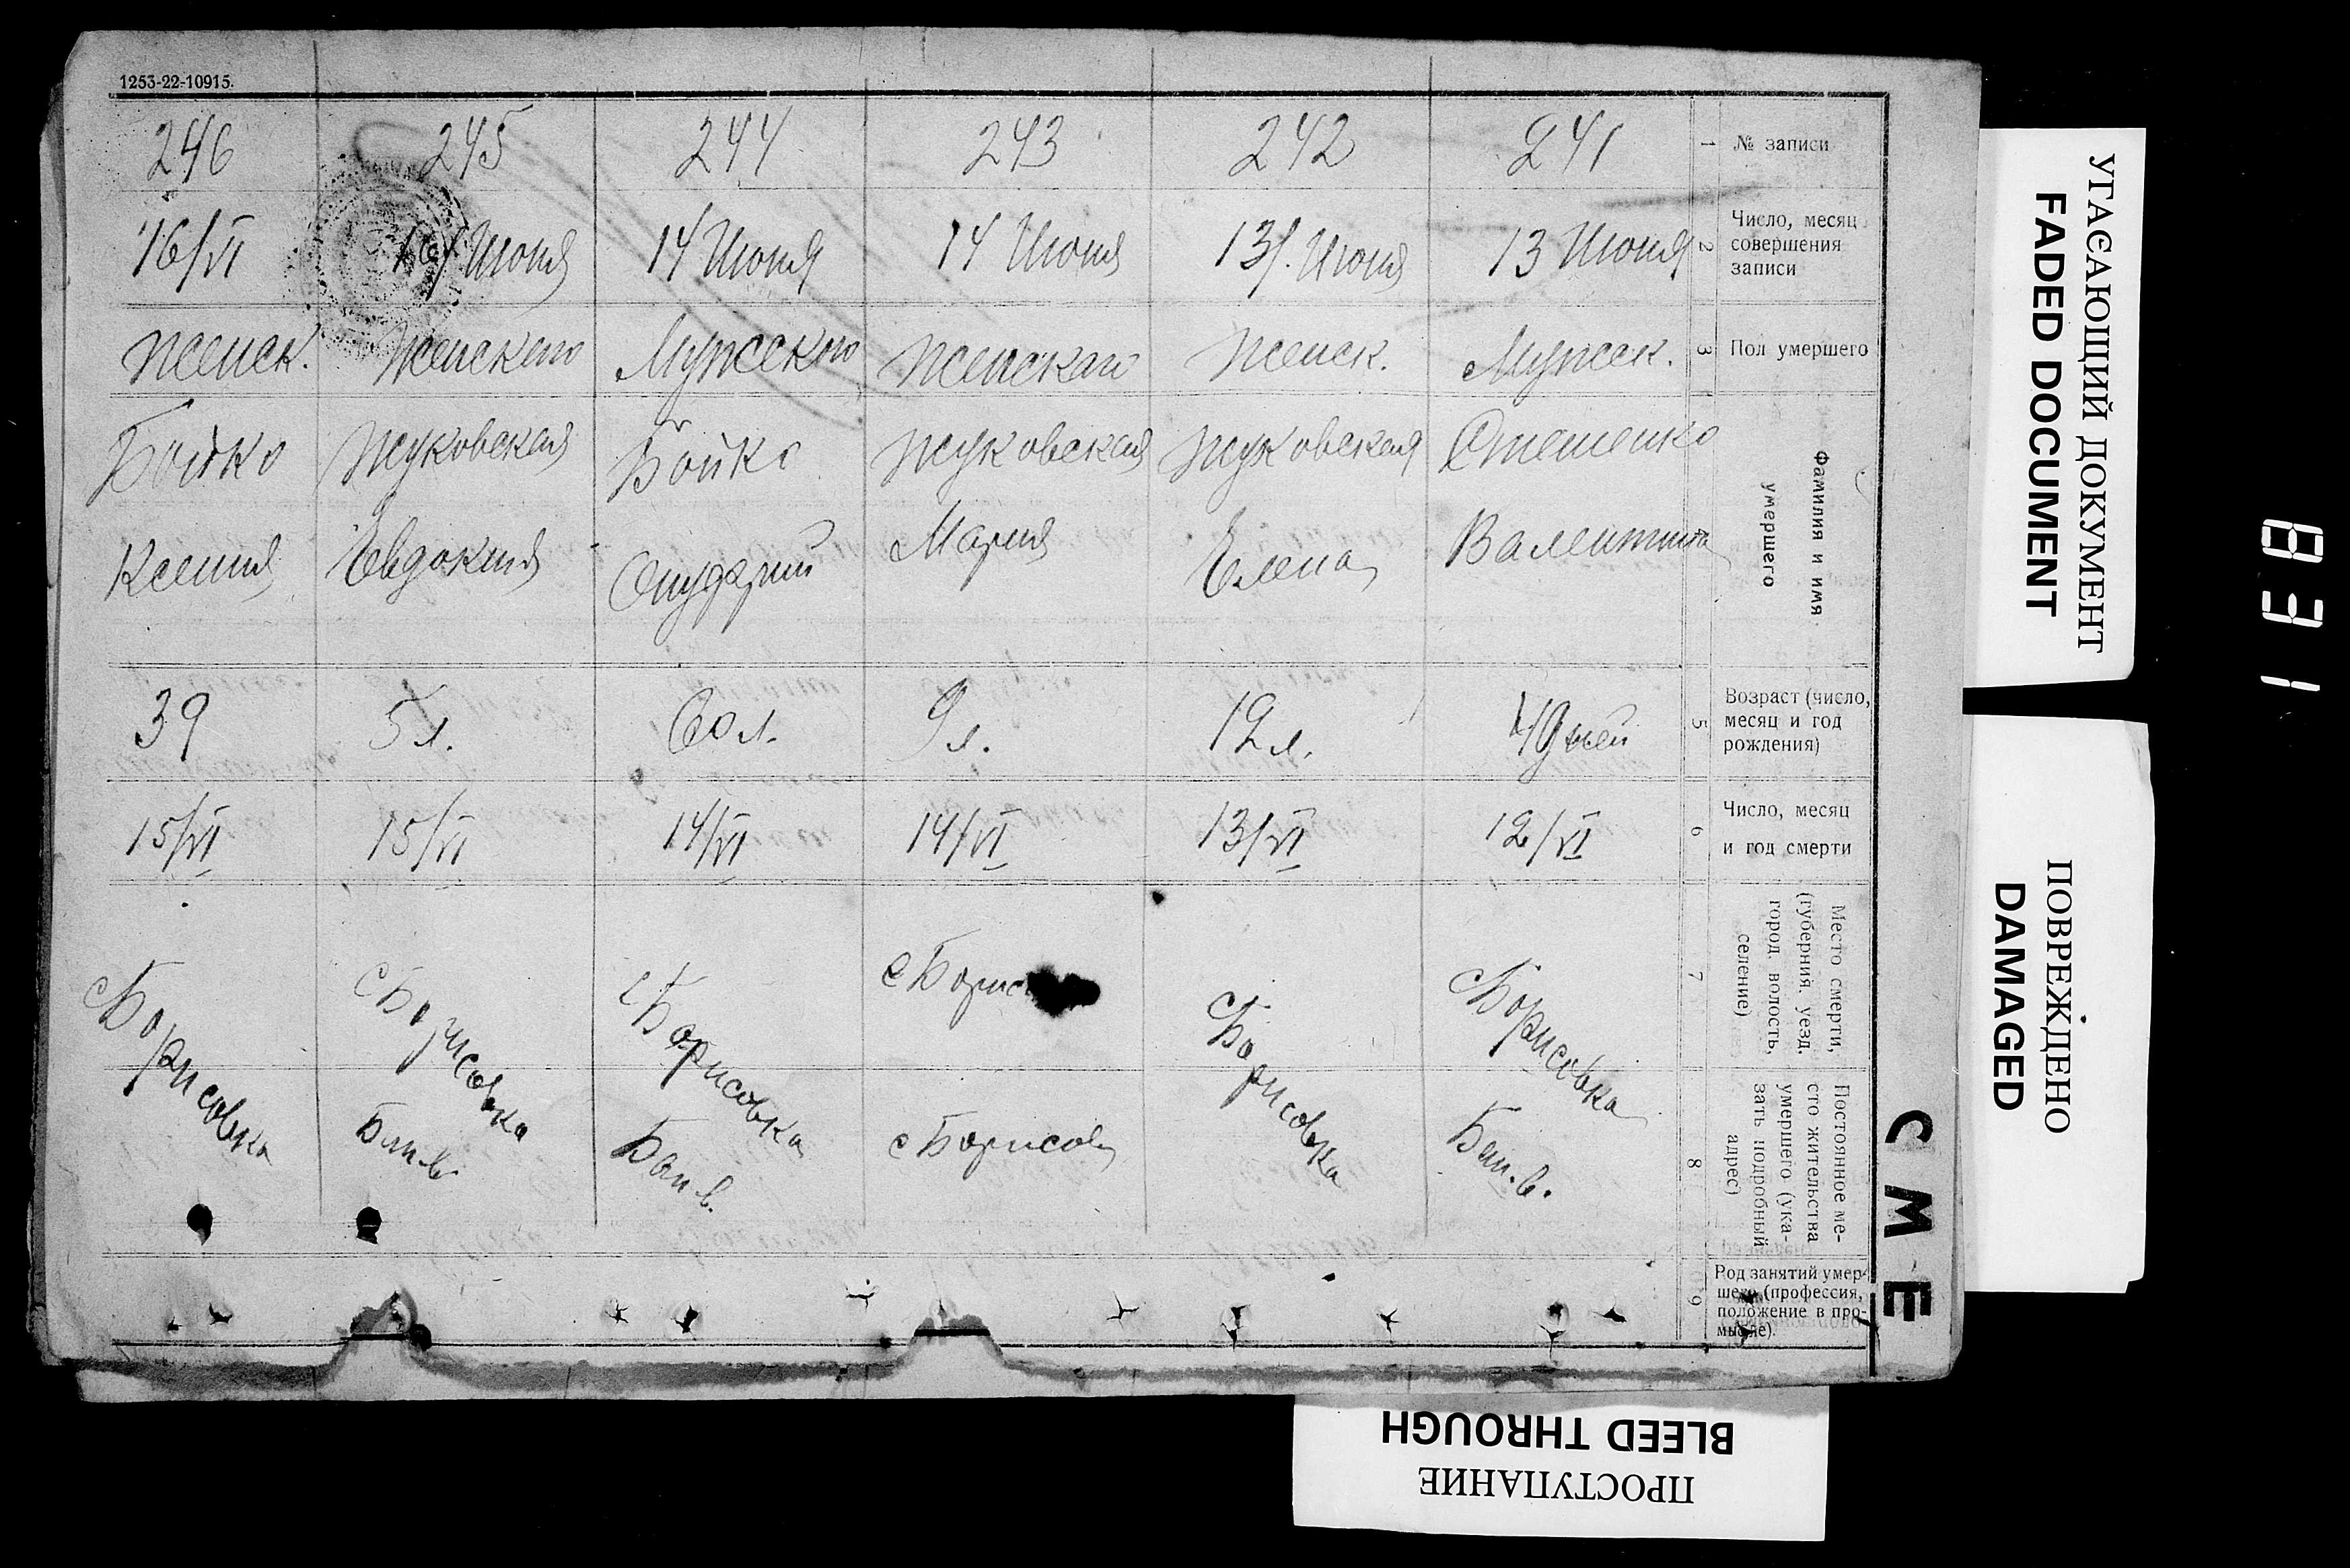 1253-22-10915.
246 245 244 243 242 241 1 № записи
16/VI 16/ Июня 14 Июня 14 Июня 13/. Июня 13 Июня 2 Число, месяц
совершения
записи
Женск. Женского Мужского Женскаго Женск. Мужск. 3 Пол умершего
Бойко Жуковская Бойко Жуковская Жуковская Стешенко
Ксения Евдокия Онуфрий Мария Елена Валентина
Фамилия и имя
умершего
39 5 л. 60 л. 9 л. 12 л. 49 дней 5 Возраст (число,
месяц и год
рождения)
15/VI 15/VI 14/VI 14/VI 13/VI 12/VI 6 Число, месяц
и год смерти
с Борисовка с Борисовка с Борисовка с Борис с Борисовка с Борисовка 7
Место смерти,
(губерния, уезд,
город, волость,
селение)
Бан. в. с Борисов Бан. в. 8
Постоянное ме-
сто жительства
умершего (ука-
зать подробный
адрес)
9 Род занятий умер-
шего (профессия,
положение в про-
мысле).
СМЕ
УГАСАЮЩИЙ ДОКУМЕНТ
FADED DOCUMENT
ПОВРЕЖДЕНО
DAMAGED
BLEED THROUGH
ПРОСТУПАНИЕ
831